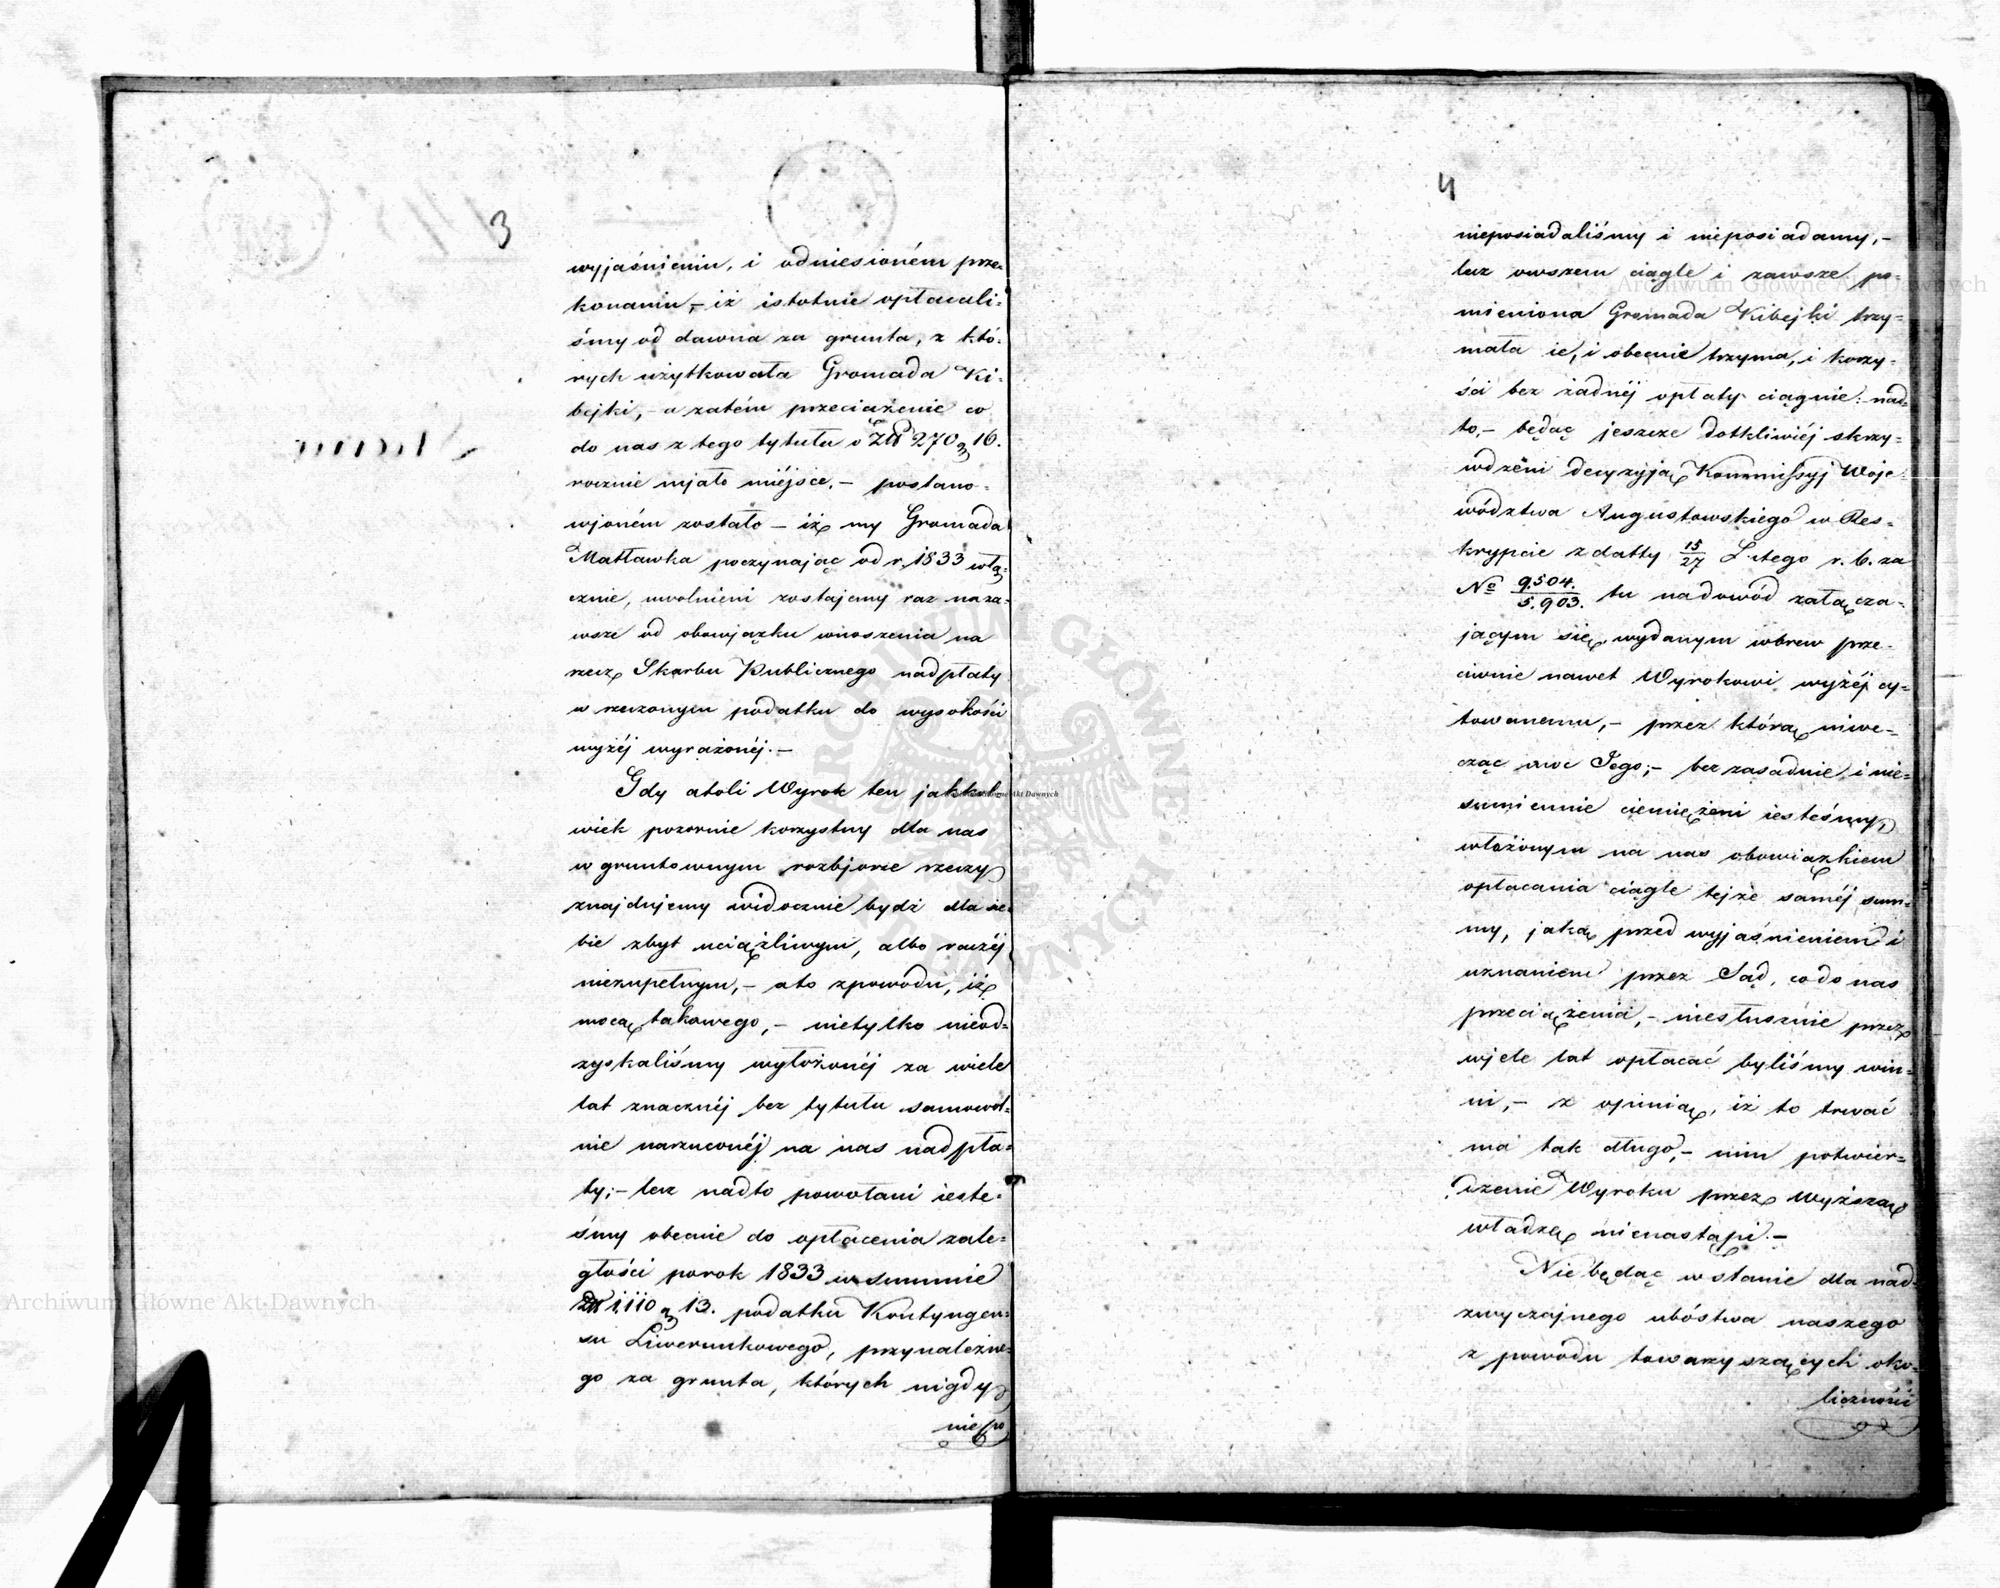 3
wyjaśnieniu, i odniesioném prze-
konaniu,- iż istotnie opłacali-
śmy od dawna za grunta, z któ-
rych użytkowała Gromada Ki-
bejki,- a zatém przeciążenie co
do nas z tego tytułu o Złł 270 g 16.
rocznie mjało miéjsce,- postano-
wjoném zostało – iż my Gromada
Matławka poczynając od r. 1833 włą-
cznie, uwolnieni zostajemy raz na za-
wsze od obowjązku wnoszenia na
rzecz Skarbu Publicznego nadpłaty
w rzeczonym podatku do wysokości
wyżéj wyrażonéj.-
Gdy atoli Wyrok ten jakkol-
wiek pozornie korzystny dla nas
w gruntownym rozbjorze rzeczy
znajdujemy widocznie bydź dla sie-
bie zbyt uciążliwym, albo raczéj
niezupełnym,- a to z powodu, iż
mocą takowego,- nietylko nieod-
zyskaliśmy wyłożonéj za wiele
lat znacznéj bez tytułu samowol-
nie narzuconéj na nas nadpła-
ty;- lecz nadto powołani ieste-
śmy obecnie do opłacenia zale-
głości porok 1833 w summie
Złł 1110 g 13. podatku Kontyngen-
su Liwerunkowego, przynależne-
go za grunta, których nigdy
niepo
4
nieposiadaliśmy i nieposiadamy,-
lecz owszem ciągle i zawsze po-
mieniona Gromada Kibejki trzy-
mała ie, i obecnie trzyma, i korzy-
ści bez żadnéj opłaty ciągnie: nad-
to,- będąc jeszcze dotkliwiéj skrzy-
wdzeni decyzyją Kommissyj Woje-
wództwa Augustowskiego w Res-
krypcie z datty 15/27 Lutego r. b. za
No 9.504./5.903. tu na dowód załącza-
jącym się, wydanym wbrew prze-
ciwnie nawet Wyrokowi wyżéj cy-
towanemu,- przez którą niwe-
cząc moc Jego;- bezzasadnie i nie-
sumiennie ciemiężeni iesteśmy,
włożonym na nas obowiązkiem
opłacania ciągle tejże saméj sum-
my, jaką przed wyjaśnieniem i
uznaniem przez Sąd, co do nas
przeciążenia,- niesłusznie przez
wjele lat opłacać byliśmy win-
ni,- z opinią, iż to trwać
ma tak długo,- nim potwier-
dzenie Wyroku przez wyższą
władzę nienastąpi.-
Nie będąc w stanie dla nad-
zwyczajnego ubóstwa naszego
z powodu towarzyszących oko-
liczności
Archiwum Główne Akt Dawnych
Archiwum Główne Akt Dawnych
Archiwum Główne Akt Dawnych
ARCHIWUM GŁÓWNE AKT DAWNYCH